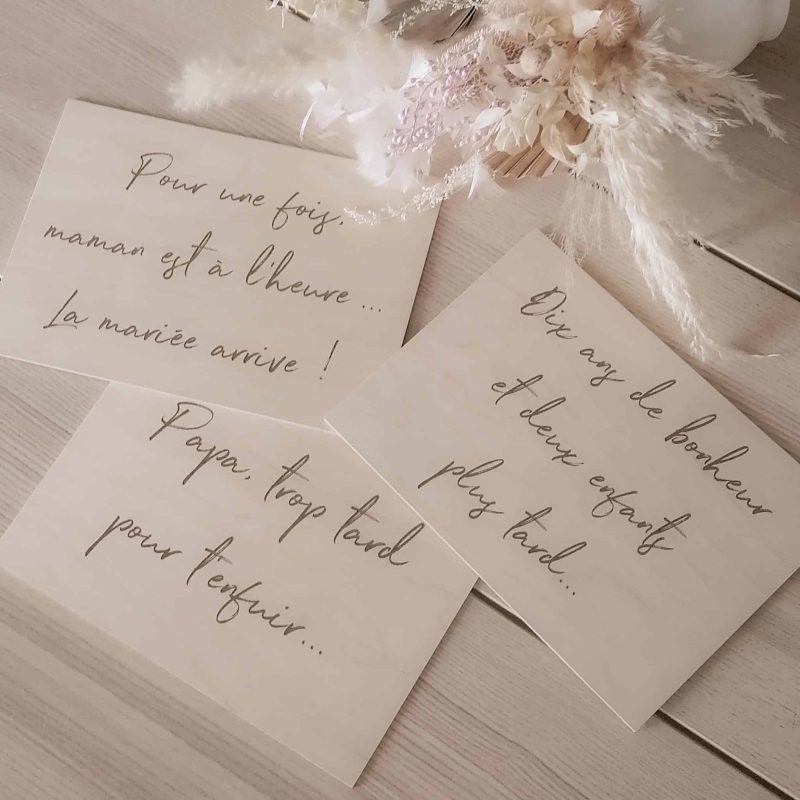 Pour une fois,
maman est à l'heure...
La mariée arrive !
Dix ans de bonheur
et deux enfants
plus tard...
Papa, trop tard
pour t'enfuir...